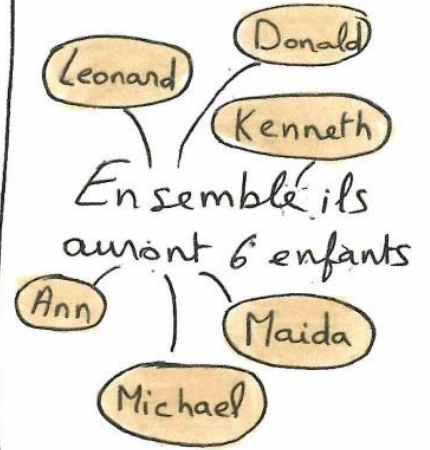 Donald
Leonard
Kenneth
Ensemble ils
auront 6 enfants
Ann
Maida
Michael